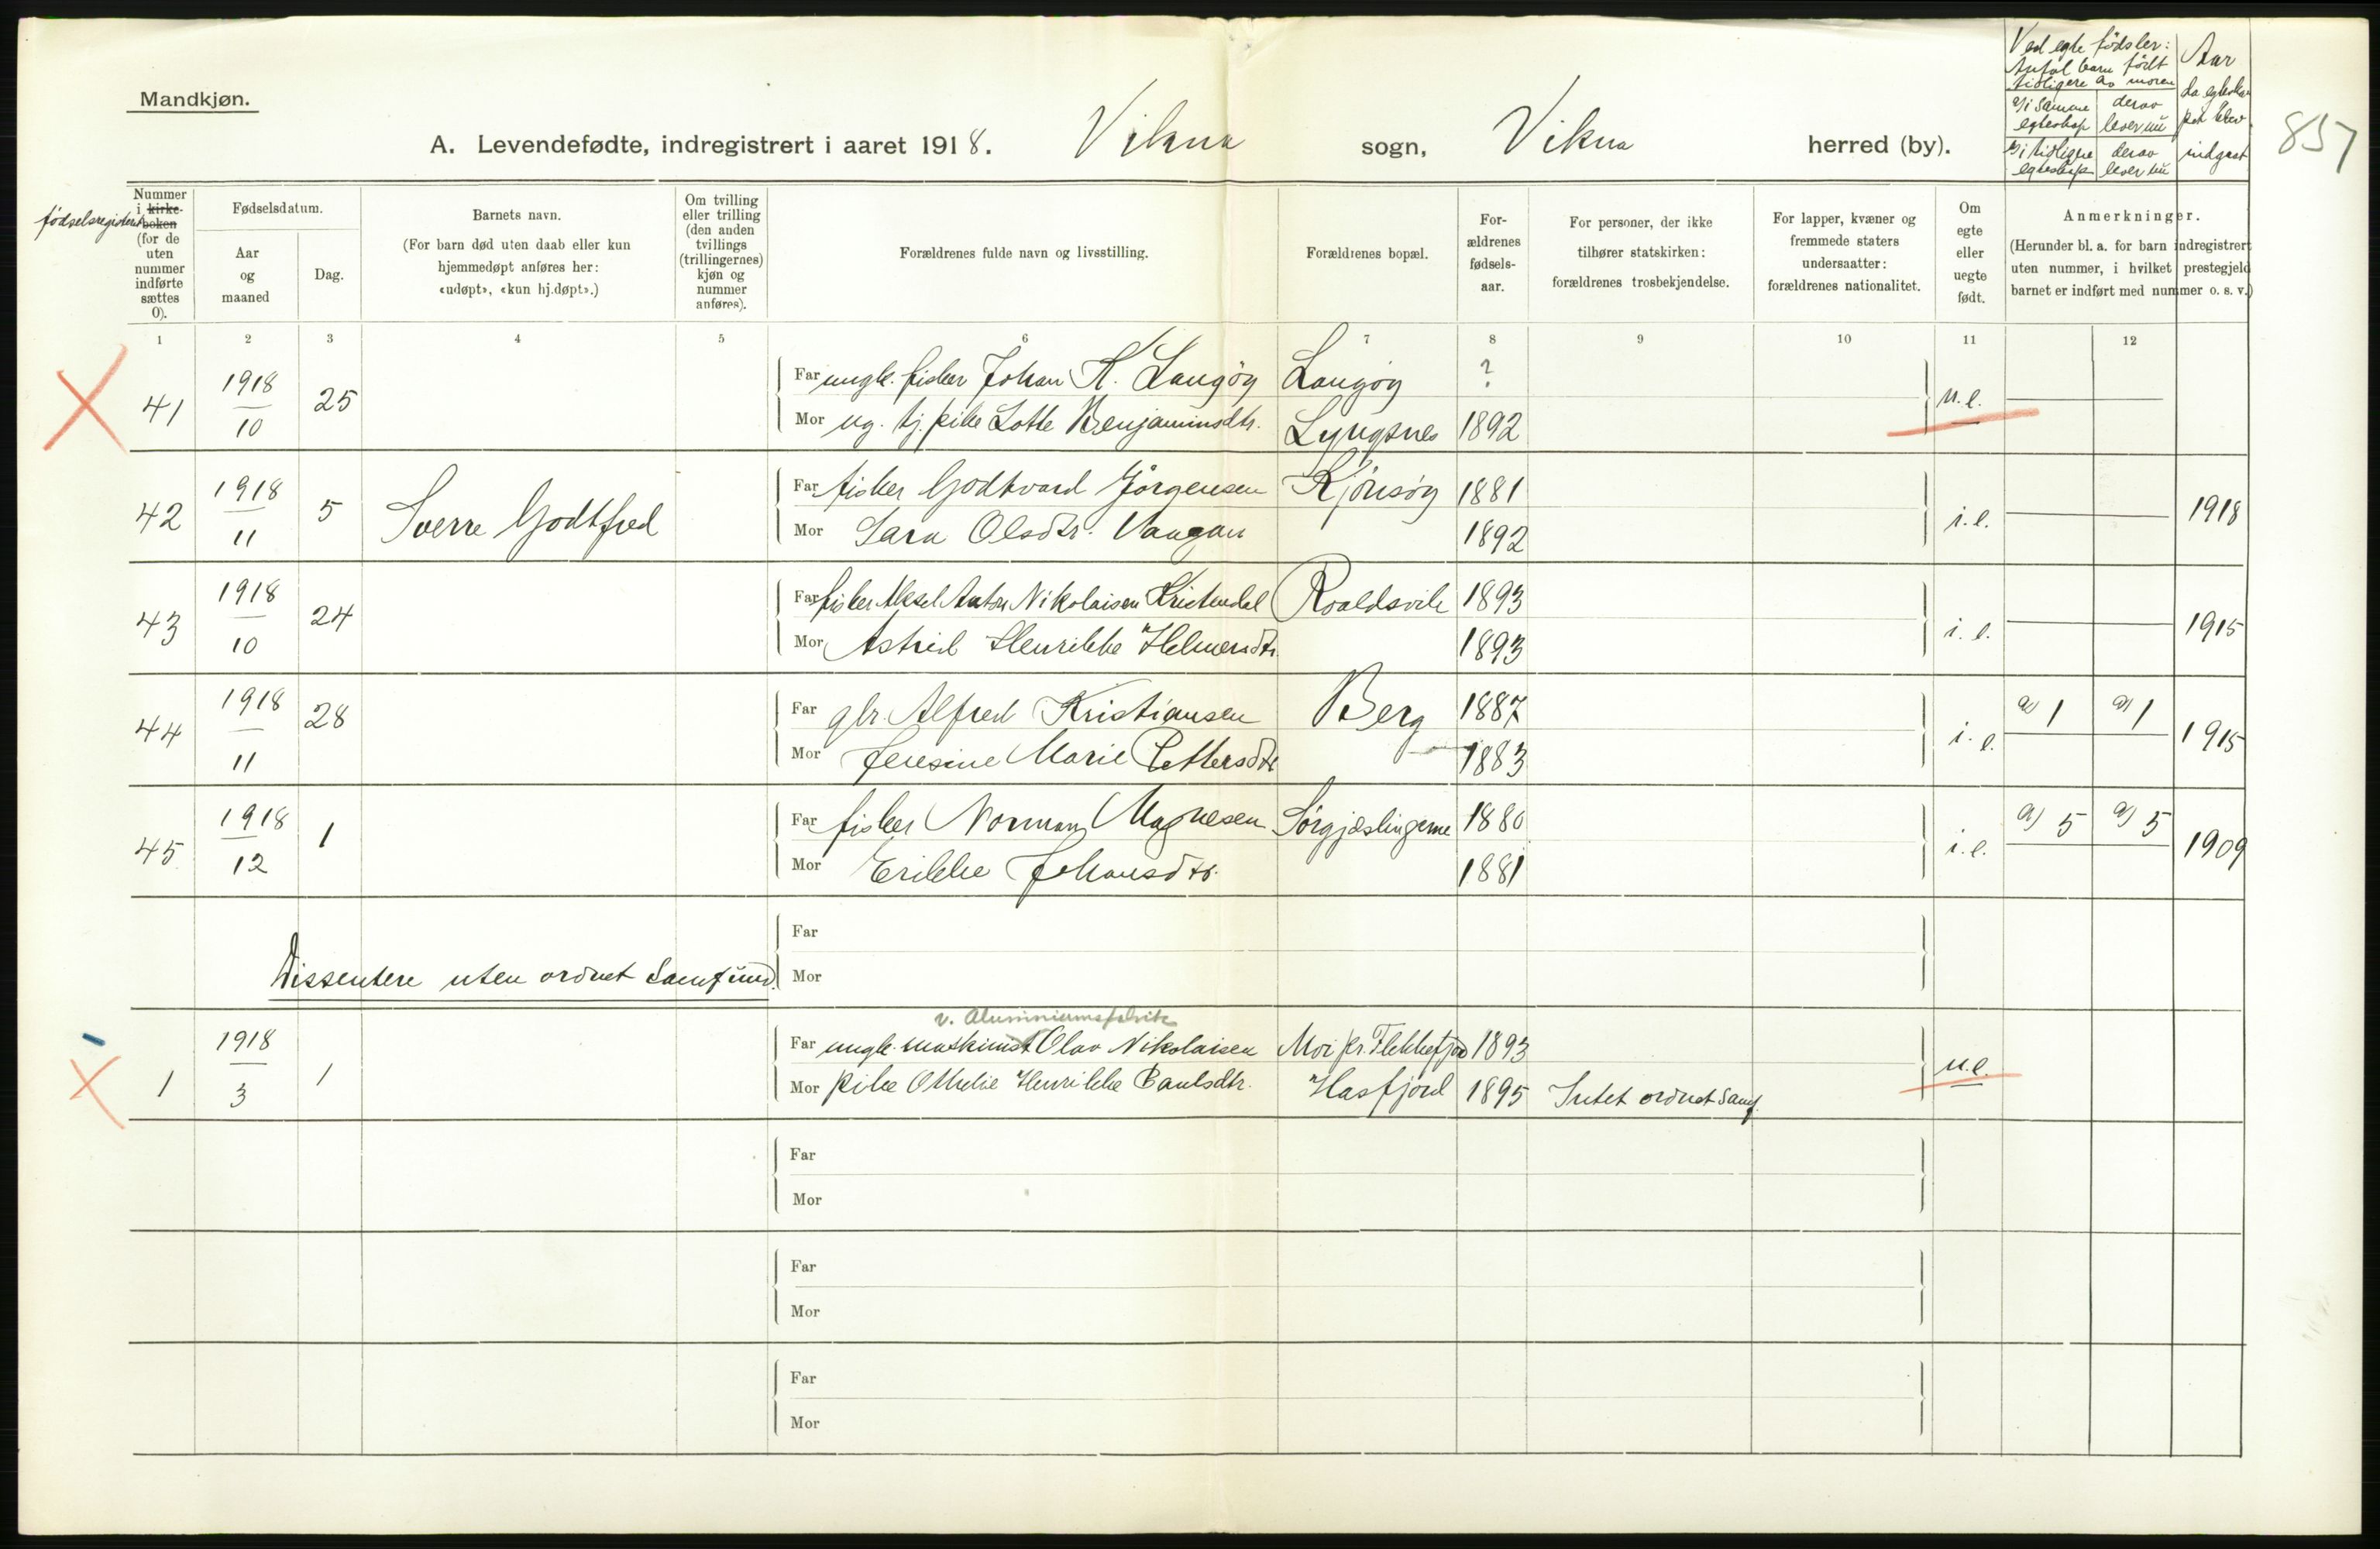 Mandkjøn.
A. Levendefødte, indregistrert i aaret 1918. Vikna sogn, Vikna herred (by).
857
Ved egte fødsler:
Antal barn født
tidligere av moren
a/ i samme egteskap
derav lever nu
b/ i tidligere egteskap
derav lever nu
Aar
da egteska-
pet blev
indgaat
Nummer i kirke-boken (for de uten nummer indførte sættes 0).
fødselsregisteret
Fødselsdatum.
Aar og maaned
Dag.
Barnets navn.
(For barn død uten daab eller kun
hjemmedøpt anføres her:
«udøpt», «kun hj.døpt».)
Om tvilling eller trilling (den anden tvillings (trillingernes) kjøn og nummer anføres).
Forældrenes fulde navn og livsstilling.
Forældrenes bopæl.
For-ældrenes fødsels-aar.
For personer, der ikke
tilhører statskirken:
forældrenes trosbekjendelse.
For lapper, kvæner og
fremmede staters
undersaatter:
forældrenes nationalitet.
Om egte eller uegte født.
Anmerkninger.
(Herunder bl. a. for barn indregistrert
uten nummer, i hvilket prestegjeld
barnet er indført med nummer o. s. v.)
1 2 3 4 5 6 7 8 9 10 11 12
41 1918/10 25 Far ungk. fisker Johan K. Langøy Langøy ? u.e.
Mor ug. tj. pike Lotte Benjaminsdtr. Lyngsnes 1892
42 1918/11 5 Sverre Godtfred Far fisker Godtvard Jørgensen Kjønsøy 1881 i.e. 1918
Mor Sara Olsdtr. Vaagan 1892
43 1918/10 24 Far fisker Aksel Anton Nikolaisen Kristendal Roaldsvik 1893 i.e. 1915
Mor Astrid Henrikke Helmersdtr. 1893
44 1918/11 28 Far gbr. Alfred Kristiansen Berg 1887 i.e. a) 1 a) 1 1915
Mor Jensine Marie Pettersdtr 1883
45 1918/12 1 Far fisker Norman Magnesen Sørgjæslingerne 1880 i.e. a) 5 a) 5 1909
Mor Erikke Johansdtr. 1881
Far
Dissentere uten ordnet samfund. Mor
v. Aluminiumsfabrik
1 1918/3 1 Far ungk. maskinist Olav Nikolaisen Moi pr. Flekkefjord 1893 u.e.
Mor pike Othelie Henrikke Paulsdtr. Hasfjord 1895 Intet ordnet samf.
Far
Mor
Far
Mor
Far
Mor